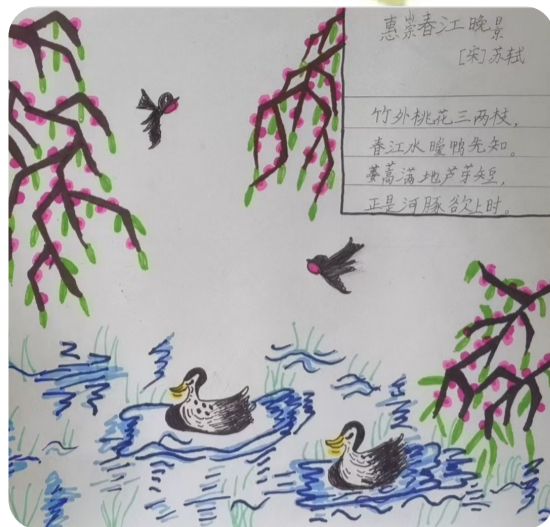 惠崇春江晚景
[宋]苏轼
竹外桃花三两枝，
春江水暖鸭先知。
蒌蒿满地芦芽短，
正是河豚欲上时。